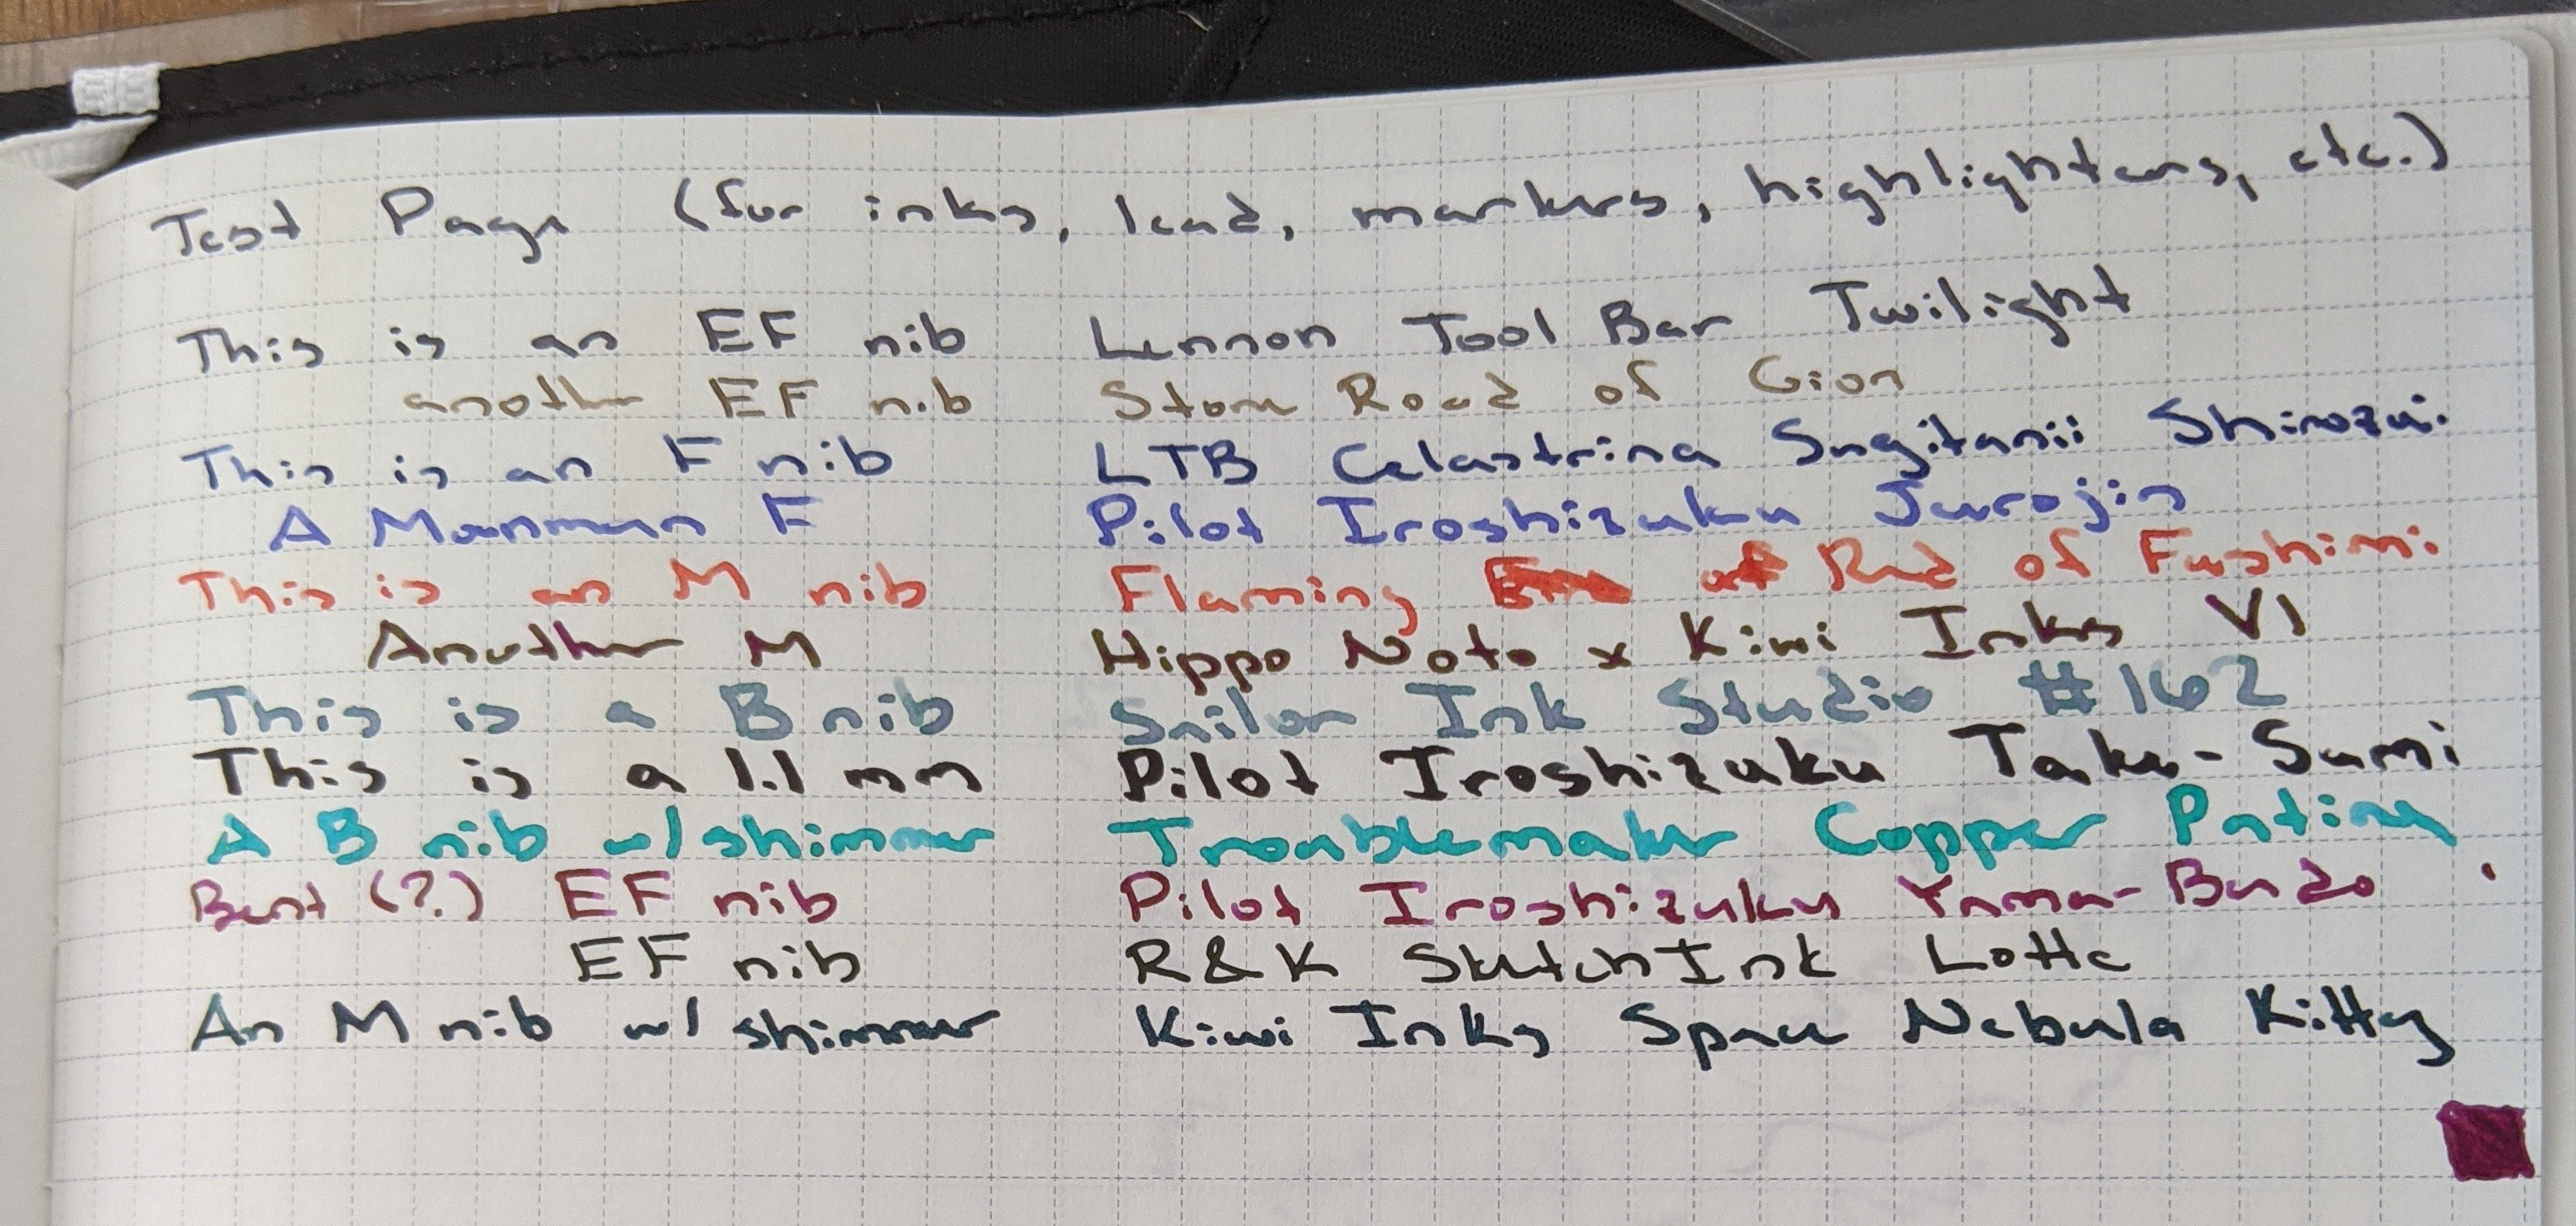 Test Page (for inks, lead, markers, highlighters, etc.)
This is an EF nib Lennon Tool Bar Twilight
another EF nib Stone Road of Gion
This is an F nib LTB Celastrina Sugitanii Shirozui
A Moonman F Pilot Iroshizuku Jurojin
This is an M nib Flaming Red of Fushimi
Another M Hippo Noto x Kiwi Inks V1
This is a B nib Sailor Ink Studio #162
This is a 1.1 mm Pilot Iroshizuku Take-Sumi
A B nib w/ shimmer Troublemaker Copper Patina
Bent (?) EF nib Pilot Iroshizuku Yama-Budo
EF nib R&K SketchInk Lotte
An M nib w/ shimmer Kiwi Inks Space Nebula Kitty